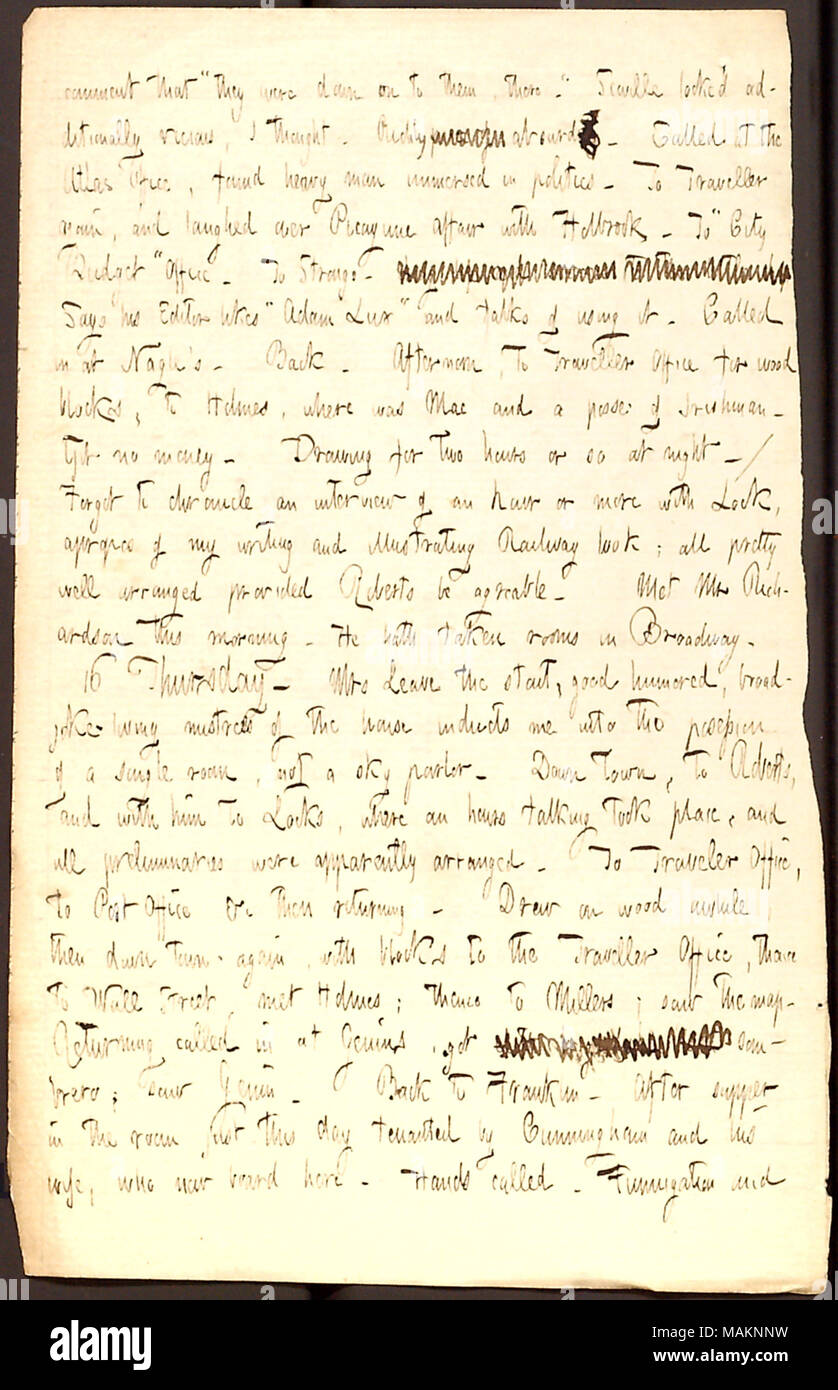 comment that "they were down on to them, there." Seville looked ad-
ditionally vicious, I thought. Richly absurd. Called at the
Atlas Office, found heavy man immersed in politics. To Traveller
again, and laughed over Picayune affair with Holbrook. To "City
Budget" Office. To Strong's.
Says his Editor likes "Adam Lux" and talks of using it. Called
in at Nagle's. Back. Afternoon, to Traveller Office for wood
blocks, to Holmes, where was Mac and a posse of Irishman.
Got no money. Drawing for two hours or so at night. /
Forgot to chronicle an interview of an hour or more with Lock,
apropos of my writing and illustrating Railway book; all pretty
well arranged provided Roberts be agreable. Met Mr Rich-
ardson this morning. He hath taken rooms in Broadway.
16 Thursday. Mrs Leave the stout, good humored, broad-
joke-loving mistress of the house inducts me into the possession
of a single room, not a sky parlor. Down town, to Roberts,
and with him to Locks, where an hours talking took place, and
all preliminaries were apparently arranged. To Traveler Office,
to Post Office &c then returning. Drew on wood awhile,
then down town again, with blocks to the Traveller Office, thence
to Wall Street, met Holmes; thence to Millers; saw the map.
Returning called in at Genins, got som-
brero; saw Genin. Back to Franklin. After supper
in the room just this day tenanted by Cunningham and his
wife, who now board here. Hands called. Fumigation and
alamy
Image ID: MAKNNW
www.alamy.com